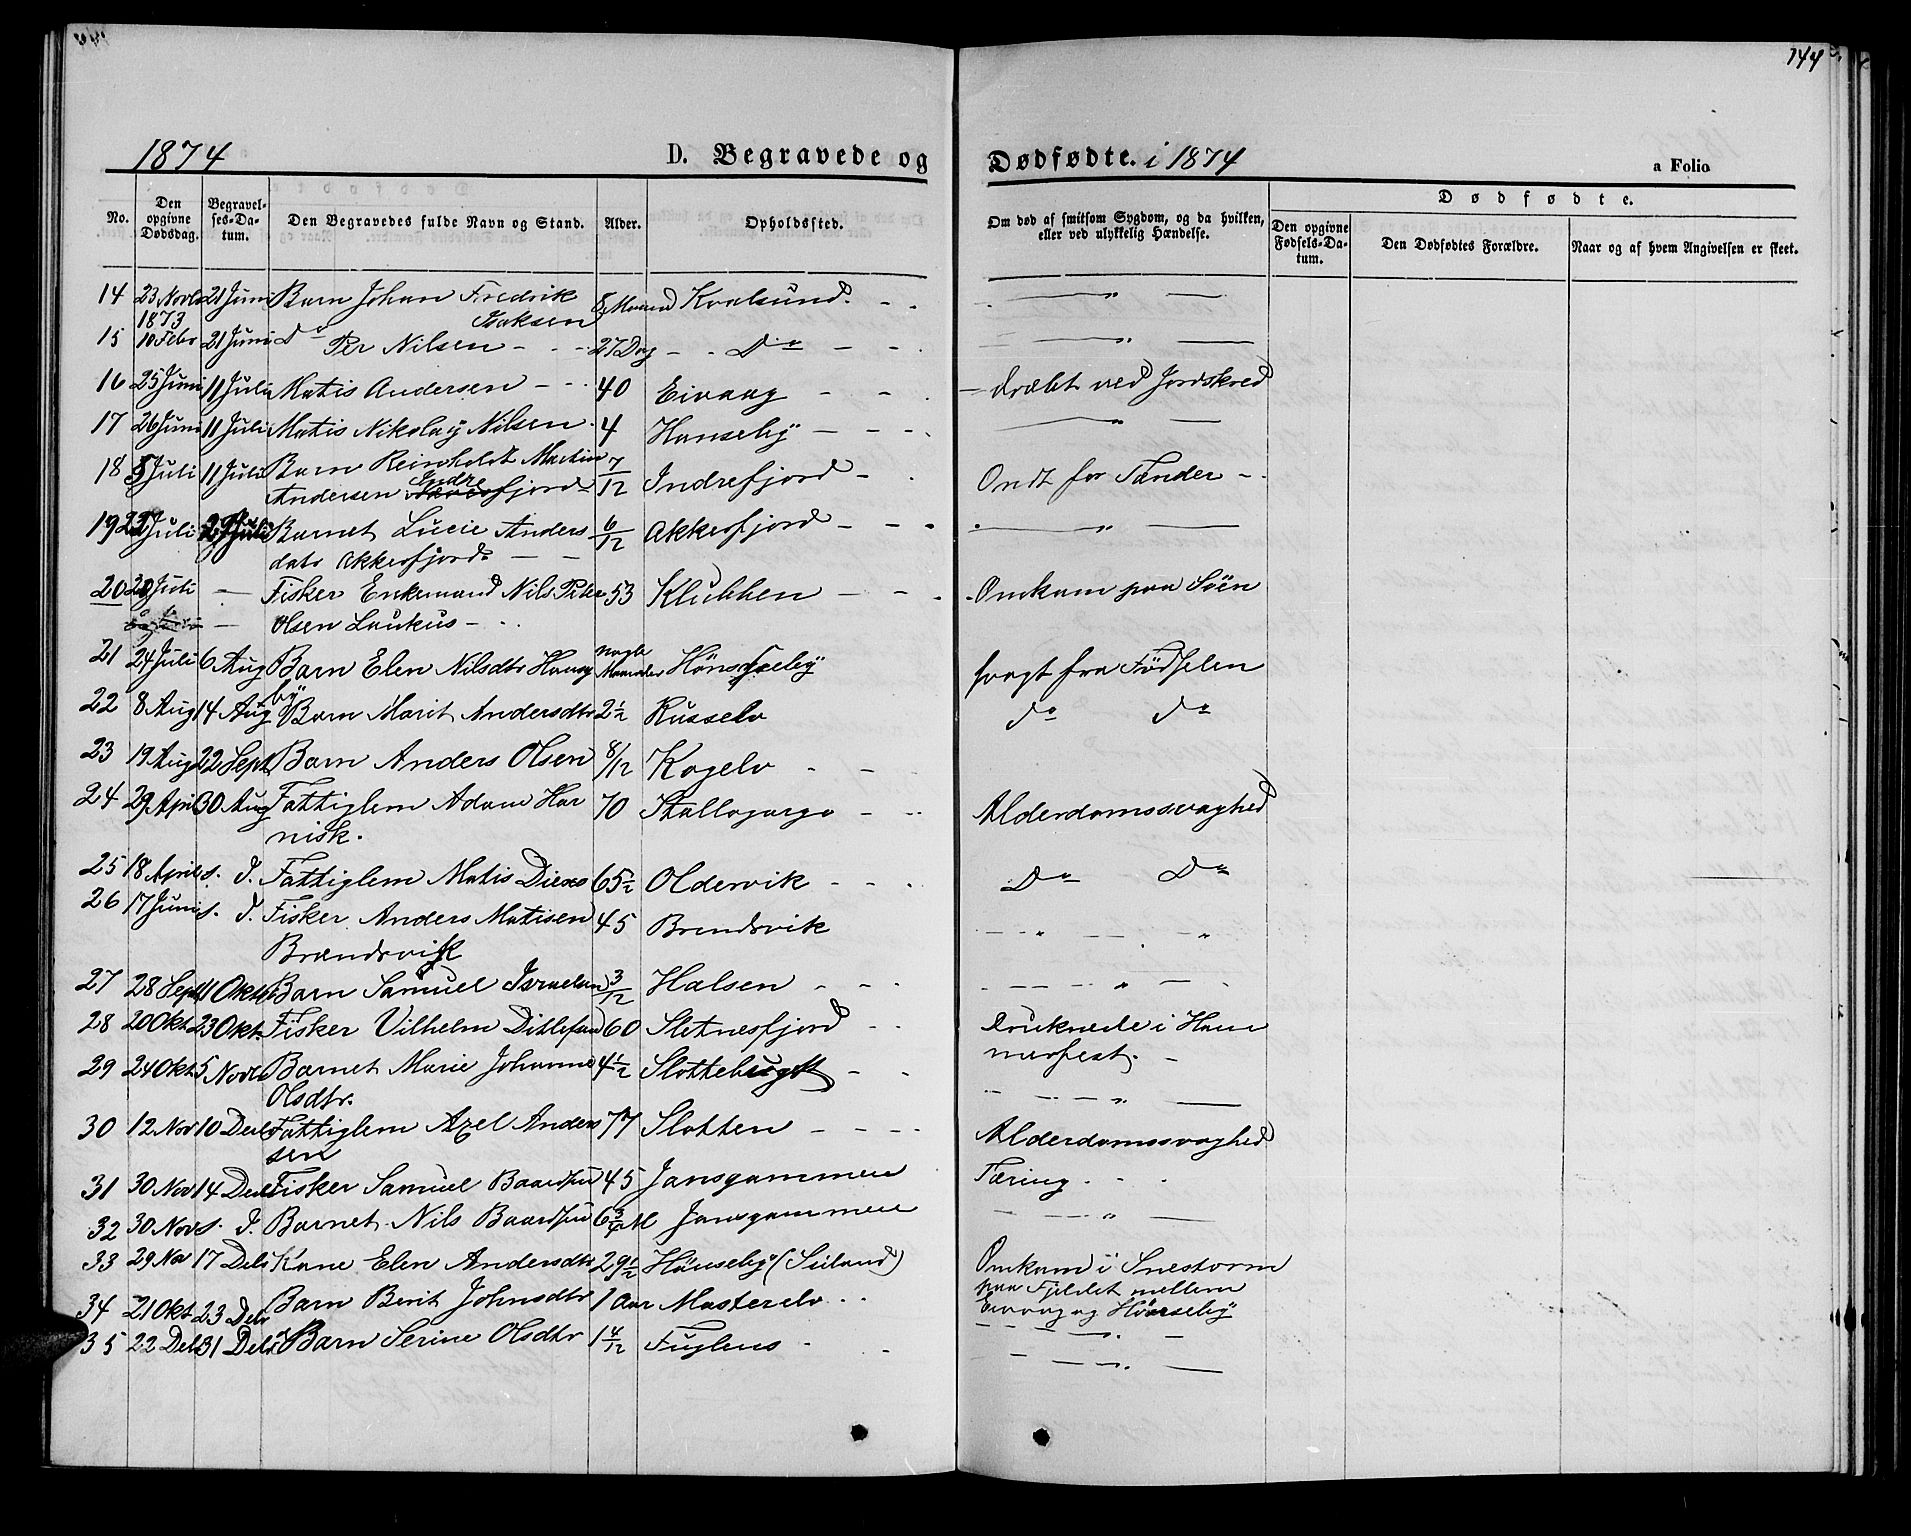 144
1874 D. Begravede og Dødfødte. i 1874 a Folio
No. Den opgivne Dødsdag. Begravelses-Datum. Den Begravedes fulde Navn og Stand. Alder. Opholdssted. Om død af smitsom Sygdom, og da hvilken, eller ved ulykkelig Hændelse. Dødfødte. Den opgivne Fødsels-Datum. Den Dødfødtes Forældre. Naar og af hvem Angivelsen er skeet.
14 23 Novb 21 Juni Barn Johan Fredrik 8 Maaned Kvalsund - - — " —
1873 Isaksen
15 10 Febr 21 Juni Do Per Nilsen - - - 27 Dag - - Do - - — " —
16 25 Juni 11 Juli Matis Andersen - - 40 Eivaag - - - dræbt ved Jordskred
17 26 Juni 11 Juli Matis Nikolay Nilsen 4 Hønseby - - - — " —
18 5 Juli 11 Juli Barn Reinholdt Martin 7/12 Indrefjord - - Ondt for Tænder - -
Andersen Indre fjord
19 Juli Juli Barnet Lucie Anders 6/12 Akkerfjord - - - — " —
datr Akkerfjord - -
20 20 Juli — Fisker Enkemand Nils Peter 53 Klubben - - - Omkom paa Søen
— Olsen Laukus - -
21 24 Juli 6 Aug Barn Elen Nilsdtr Hønse nogle Maaneder Hønseby svagt fra Fødselen
by
22 8 Aug 14 Aug Barn Marit Andersdtr 2 1/2 Russelv do do
23 19 Aug 22 Sept Barn Anders Olsen 8/12 Kogelv - - -
24 29 Apri 30 Aug Fattiglem Adam Har 70 Stallogargo - - Alderdomssvaghed
nisk.
25 18 April s. d. Fattiglem Matis 65 1/2 Oldervik - - - Do Do
26 17 Juni s. d. Fisker Anders Matisen 45 Brendsvik — " — — "
Brændsvik
27 28 Sept 11 Okt Barn Samuel Israelsen 3/12 Halsen - - - - — — " —
28 20 Okt 23 Okt. Fisker Vilhelm Ditlefsen 60 Sletnesfjord - - Druknede i Ham
merfest. -
29 24 Okt 5 Novb Barnet Marie Johanne 4 1/2 Slottebugt - - - — — " —
Olsdtr.
30 12 Nov 10 Decb Fattiglem Axel Anders 77 Slotten - - - - Alderdomssvaghed
sen
31 30 Nov 14 Decb Fisker Samuel Baardsen 45 Jansgammen Tæring. - -
32 30 Nov s. d. Barnet Nils Baardsen 6 3/4 M Jansgammen — — " —
33 29 Nov 17 Deb Kone Elen Andersdtr 29 1/2 Hønseby (Seiland) Omkom i Snestorm
paa Fjeldet mellem
Eivaag og Hønseby
34 21 Okt 23 Deb Barn Berit Johnsdtr 1 Aar Masterelv - - - — — " —
35 22 Deb 31 Deb Barn Serine Olsdtr 1 4/12 Fuglens - - - — " —